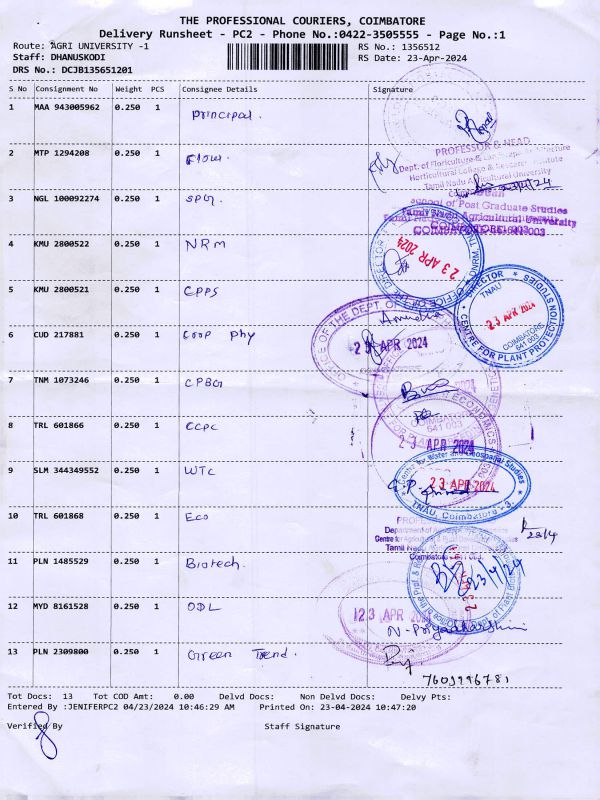 THE PROFESSIONAL COURIERS, COIMBATORE
Delivery Runsheet - PC2 - Phone No.:0422-3505555 - Page No.:1
Route: AGRI UNIVERSITY -1
RS No.: 1356512
Staff: DHANUSKODI
RS Date: 23-Apr-2024
DRS No.: DCJB135651201
S No Consignment No Weight PCS Consignee Details Signature
1 MAA 943005962 0.250 1 Principal.
2 MTP 1294208 0.250 1 Flow.
PROFESSOR & HEAD
Dept. of Floriculture & Landscape Architecture
Horticultural College & Research Institute
Tamil Nadu Agricultural University
3 NGL 100092274 0.250 1 SPG.
School of Post Graduate Studies
Tamil Nadu Agricultural University
4 KMU 2800522 0.250 1 NRM
23 APR 2024
5 KMU 2800521 0.250 1 CPPS
DIRECTOR
TNAU
23 APR 2024
COIMBATORE
641 003
CENTRE FOR PLANT PROTECTION STUDIES
6 CUD 217881 0.250 1 Coop Phy
Anusha
23 APR 2024
7 TNM 1073246 0.250 1 CPBG
8 TRL 601866 0.250 1 CCPC
COIMBATORE
641 003
23 APR 2024
9 SLM 344349552 0.250 1 WTC
Centre for Water and Geospatial Studies
23 APR 2024
TNAU, Coimbatore - 3.
10 TRL 601868 0.250 1 Eco
23/4
11 PLN 1485529 0.250 1 Biotech.
23/4/24
12 MYD 8161528 0.250 1 ODL
23 APR
N. Priyadharshini
13 PLN 2309800 0.250 1 Green Trend.
7603996781
Tot Docs: 13 Tot COD Amt: 0.00 Delvd Docs: Non Delvd Docs: Delvy Pts:
Entered By :JENIFERPC2 04/23/2024 10:46:29 AM Printed On: 23-04-2024 10:47:20
Verified By Staff Signature